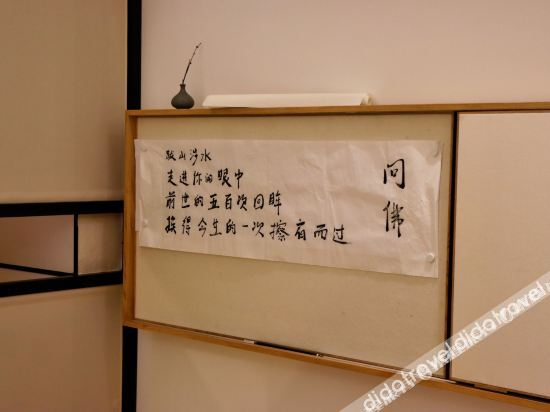 问佛
跋山涉水
走进你的眼中
前世的五百次回眸
换得今生的一次擦肩而过
didatravel.didatravel